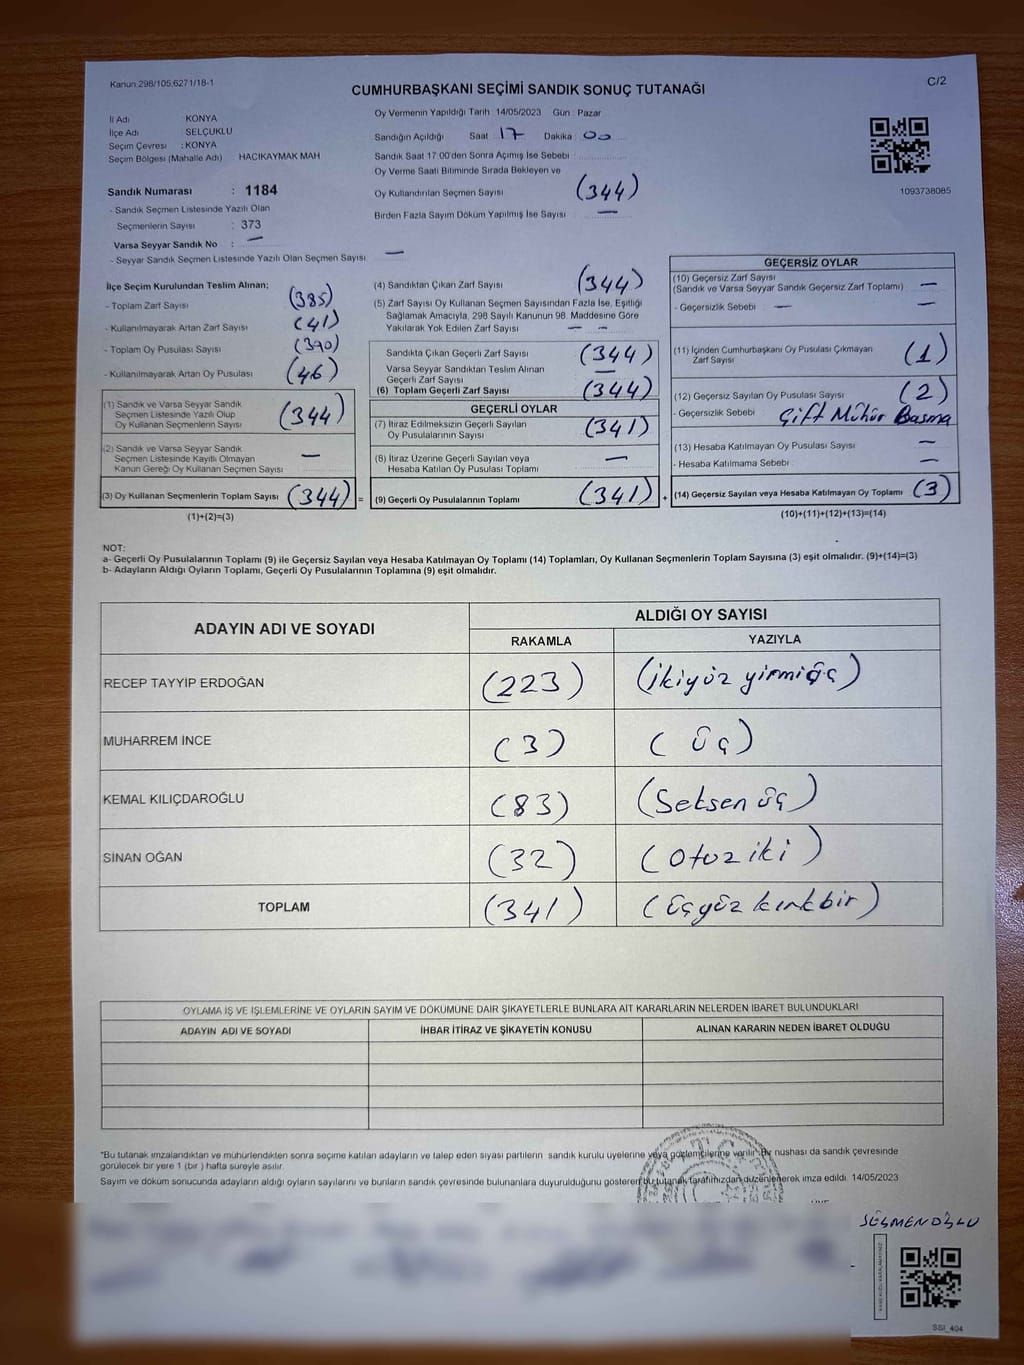 Kanun.298/105,6271/18-1
CUMHURBAŞKANI SEÇİMİ SANDIK SONUÇ TUTANAĞI
C/2
İl Adı KONYA
İlçe Adı SELÇUKLU
Seçim Çevresi : KONYA
Seçim Bölgesi (Mahalle Adı) HACIKAYMAK MAH
Sandık Numarası : 1184
- Sandık Seçmen Listesinde Yazılı Olan
Seçmenlerin Sayısı : 373
Varsa Seyyar Sandık No : —
- Seyyar Sandık Seçmen Listesinde Yazılı Olan Seçmen Sayısı —
Oy Vermenin Yapıldığı Tarih : 14/05/2023 Gün : Pazar
Sandığın Açıldığı Saat 17 Dakika 00
Sandık Saat 17:00'den Sonra Açılmış İse Sebebi
Oy Verme Saati Bitiminde Sırada Bekleyen ve
Oy Kullandırılan Seçmen Sayısı (344)
Birden Fazla Sayım Döküm Yapılmış İse Sayısı —
1093738085
İlçe Seçim Kurulundan Teslim Alınan;
- Toplam Zarf Sayısı (385)
- Kullanılmayarak Artan Zarf Sayısı (41)
- Toplam Oy Pusulası Sayısı (390)
- Kullanılmayarak Artan Oy Pusulası (46)
(1) Sandık ve Varsa Seyyar Sandık
Seçmen Listesinde Yazılı Olup
Oy Kullanan Seçmenlerin Sayısı (344)
(2) Sandık ve Varsa Seyyar Sandık
Seçmen Listesinde Kayıtlı Olmayan
Kanun Gereği Oy Kullanan Seçmen Sayısı —
(3) Oy Kullanan Seçmenlerin Toplam Sayısı (344) =
(1)+(2)=(3)
(4) Sandıktan Çıkan Zarf Sayısı (344)
(5) Zarf Sayısı Oy Kullanan Seçmen Sayısından Fazla İse, Eşitliği
Sağlamak Amacıyla, 298 Sayılı Kanunun 98. Maddesine Göre
Yakılarak Yok Edilen Zarf Sayısı — —
Sandıkta Çıkan Geçerli Zarf Sayısı (344)
Varsa Seyyar Sandıktan Teslim Alınan
Geçerli Zarf Sayısı —
(6) Toplam Geçerli Zarf Sayısı (344)
GEÇERLİ OYLAR
(7) İtiraz Edilmeksizin Geçerli Sayılan
Oy Pusulalarının Sayısı (341)
(8) İtiraz Üzerine Geçerli Sayılan veya
Hesaba Katılan Oy Pusulası Toplamı —
(9) Geçerli Oy Pusulalarının Toplamı (341) +
GEÇERSİZ OYLAR
(10) Geçersiz Zarf Sayısı
(Sandık ve Varsa Seyyar Sandık Geçersiz Zarf Toplamı) —
- Geçersizlik Sebebi : — —
(11) İçinden Cumhurbaşkanı Oy Pusulası Çıkmayan
Zarf Sayısı (1)
(12) Geçersiz Sayılan Oy Pusulası Sayısı (2)
- Geçersizlik Sebebi Çift Mühür Basma
(13) Hesaba Katılmayan Oy Pusulası Sayısı —
- Hesaba Katılmama Sebebi : —
(14) Geçersiz Sayılan veya Hesaba Katılmayan Oy Toplamı (3)
(10)+(11)+(12)+(13)=(14)
NOT:
a- Geçerli Oy Pusulalarının Toplamı (9) ile Geçersiz Sayılan veya Hesaba Katılmayan Oy Toplamı (14) Toplamları, Oy Kullanan Seçmenlerin Toplam Sayısına (3) eşit olmalıdır. (9)+(14)=(3)
b- Adayların Aldığı Oyların Toplamı, Geçerli Oy Pusulalarının Toplamına (9) eşit olmalıdır.
ADAYIN ADI VE SOYADI ALDIĞI OY SAYISI
RAKAMLA YAZIYLA
RECEP TAYYİP ERDOĞAN (223) (ikiyüz yirmiüç)
MUHARREM İNCE (3) (üç)
KEMAL KILIÇDAROĞLU (83) (Seksen üç)
SİNAN OĞAN (32) (Otuz iki)
TOPLAM (341) (üçyüz kırkbir)
OYLAMA İŞ VE İŞLEMLERİNE VE OYLARIN SAYIM VE DÖKÜMÜNE DAİR ŞİKAYETLERLE BUNLARA AİT KARARLARIN NELERDEN İBARET BULUNDUKLARI
ADAYIN ADI VE SOYADI İHBAR İTİRAZ VE ŞİKAYETİN KONUSU ALINAN KARARIN NEDEN İBARET OLDUĞU
*Bu tutanak imzalandıktan ve mühürlendikten sonra seçime katılan adayların ve talep eden siyasi partilerin sandık kurulu üyelerine veya gözlemcilerine verilir. Bir nüshası da sandık çevresinde
görülecek bir yere 1 (bir) hafta süreyle asılır.
Sayım ve döküm sonucunda adayların aldığı oyların sayılarını ve bunların sandık çevresinde bulunanlara duyurulduğunu gösteren bu tutanak tarafımızdan düzenlenerek imza edildi. 14/05/2023
SEÇMENOĞLU
SSİ_404